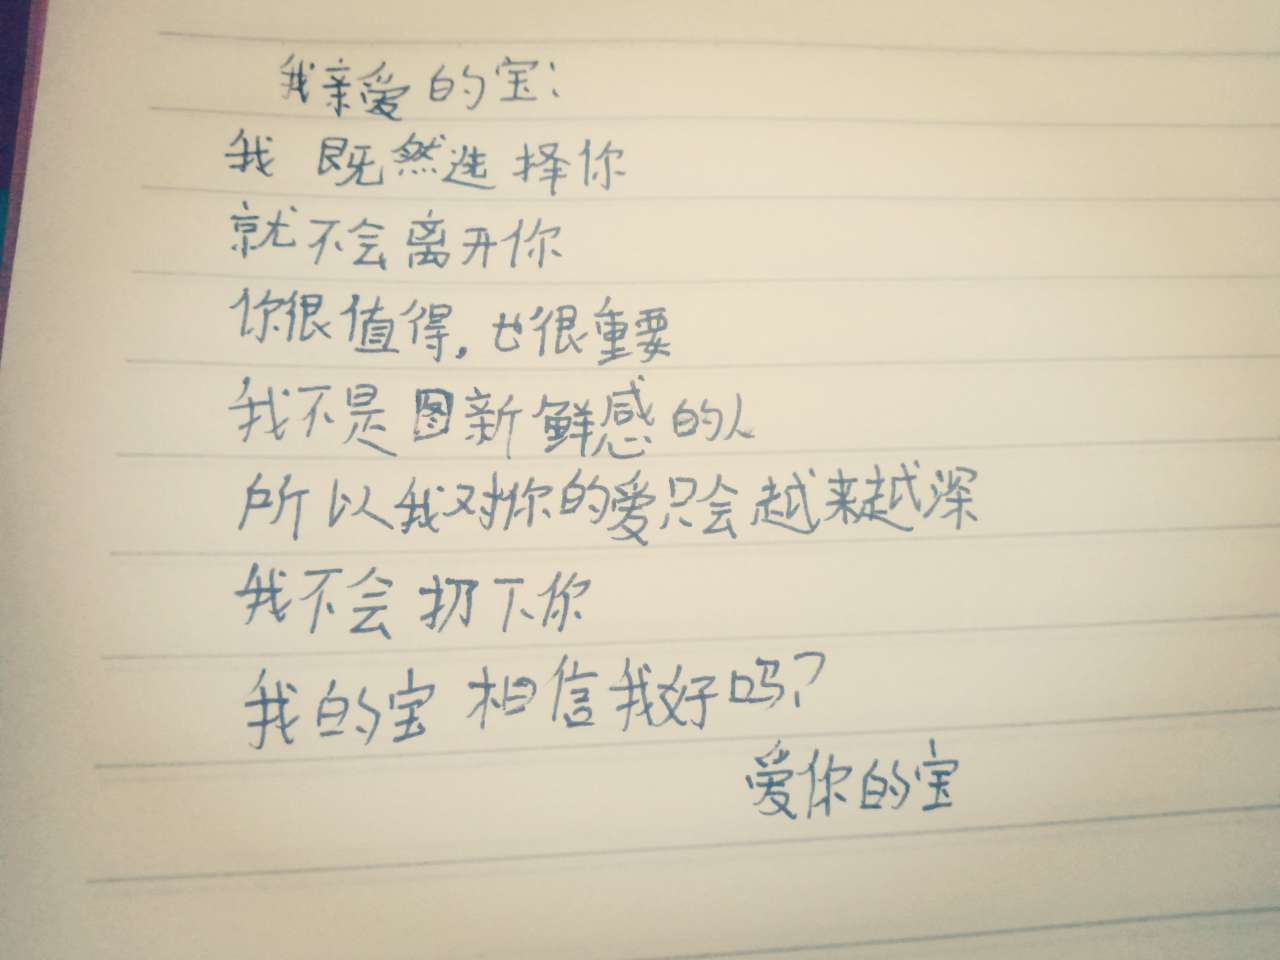 我亲爱的宝:
我既然选择你
就不会离开你
你很值得,也很重要
我不是图新鲜感的人
所以我对你的爱只会越来越深
我不会扔下你
我的宝相信我好吗?
爱你的宝